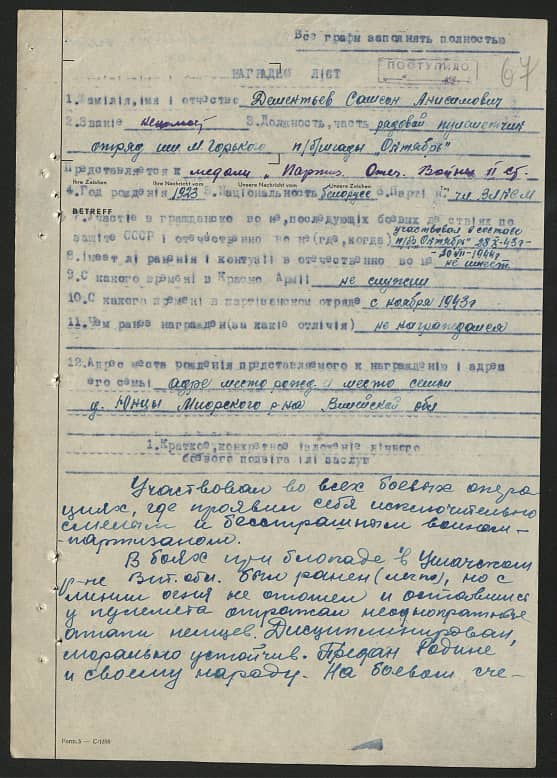 Все графи заполнять полностью
ПОСТУПИЛО
67
НАГРАДНОЙ ЛІСТ
1. Фамілія, імя і отчество Дементьев Самсон Анисимович
2. Званіе 3. Должность, часть рядовой пулеметчик
отряд им М. Горького п/бригады Октябрь"
Представляется к медали „Партиз. Отеч. Войны II ст.
Ihre Zeichen Ihre Nachricht vom Unsere Zeichen
4. Год рождения 1923 5. Національность белорус 6. Парті чл ВЛКСМ
BETREFF
7. Участіе в гражданско во не, последующіх боевых де ствіях по
защіте СССР і отечественно во не (где, когда) участвовал в составе
п/бр Октябрь" 28 X-43г-
30 VI-1944г
8. Імеет лі раненія і контузіі в отечественно во не не имеет
9. С какого времені в Красно Арміі не служил
10. С какого времені в партізанском отряде с ноября 1943г
11. Чем ранее награжден (за какіе отлічія) не награждался
12. Адрес места рожденія представляемого к награжденію і адрес
его семьі адре место рожд. и место семьи
д. Юнцы Миорского р-на Вилейской обл
1. Краткое, конкретное ізложение лічного
боевого подвіга ілі заслуг
Участвовал во всех боевых опера
циях, где проявил себя исключительно
смелым и бесстрашным воином-
-партизаном.
В боях при блокаде в Ушачском
р-не Вит. обл. был ранен (легко), но с
линии огня не отошел и оставшись
у пулемета отражал неоднократные
атаки немцев. Дисциплинирован,
морально устойчив. Предан Родине
и своему народу. На боевом сче-
Form. 5 —